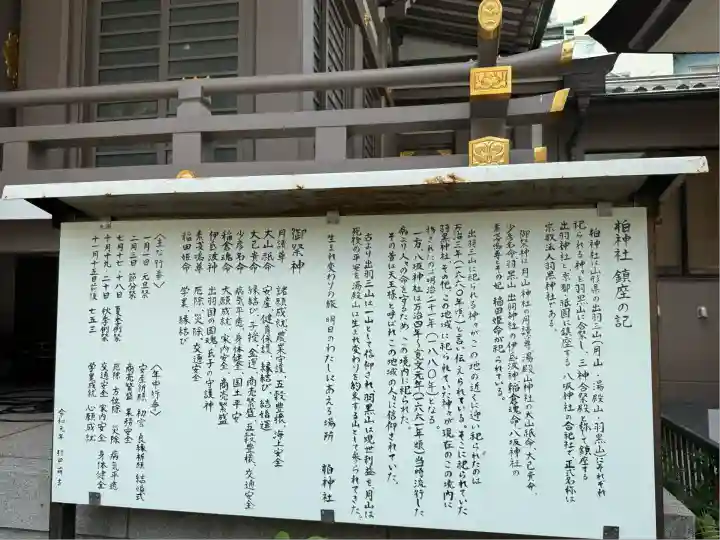 柏神社 鎮座の記
柏神社は山形県の出羽三山(月山・湯殿山・羽黒山)にそれぞれ
祀られる神々を羽黒山に合祭し、三神合祭殿と称して鎮座する
出羽神社と京都祇園に鎮座する八坂神社の合祀社で、正式名称は
宗教法人羽黒神社である。
御祭神は月山神社の月読尊、湯殿山神社の大山祇命、大己貴命、
少彦名命、羽黒山出羽神社の伊氐波神、稲倉魂命、八坂神社の
素戔嗚尊とその妃 稲田姫命が祀られている。
出羽三山に祀られる神々がこの地の近くに迎い祀られたのは
万治三年(一六六〇年頃)と言い伝えられている。そこに祀られていた
羽黒神社はその他、この地域に祀られていた神々が現在のこの境内に
は明治二十一年(一八八〇年)となる。
一方、八坂神社は万治四年~寛文元年(一六六一年頃)当時流行した
病より人々の命を守るため、この境内に祀られた。
その昔は天王様と呼ばれこの地域の人々に信仰されていた。
古より出羽三山は一山として信仰され、羽黒山は現世利益を、月山は
死後の平安を、湯殿山は生まれ変わりを約束する山として参られてきた。
生まれ変わりの旅 明日のわたしに会える場所 柏神社
御祭神
月読尊 諸願成就、農業守護、五穀豊穣、海上安全
大山祇命 安産、健育保護、縁結び、結婚運
大己貴命 縁結び、子授、金運、商売繁盛、五穀豊穣、交通安全
少彦名命 病気平癒、身体健全、国土平安
稲倉魂命 大願成就、家内安全、商売繁盛
伊氐波神 出羽国の国魂、氏子の守護神
素戔嗚尊 厄除、災除、交通安全
稲田姫命 学業、縁結び
〈主な行事〉
一月一日 元旦祭
二月三日 節分祭
七月十七・十八日 夏季例祭
十月十九・二十日 秋季例祭
十一月十五日前後 七五三
〈年中行事〉
安産祈願 初宮 良縁祈願 結婚式
商売繁盛 業務安全
厄除 方位除 災除 病気平癒
交通安全 家内安全 身体健全
学業成就 心願成就
令和元年